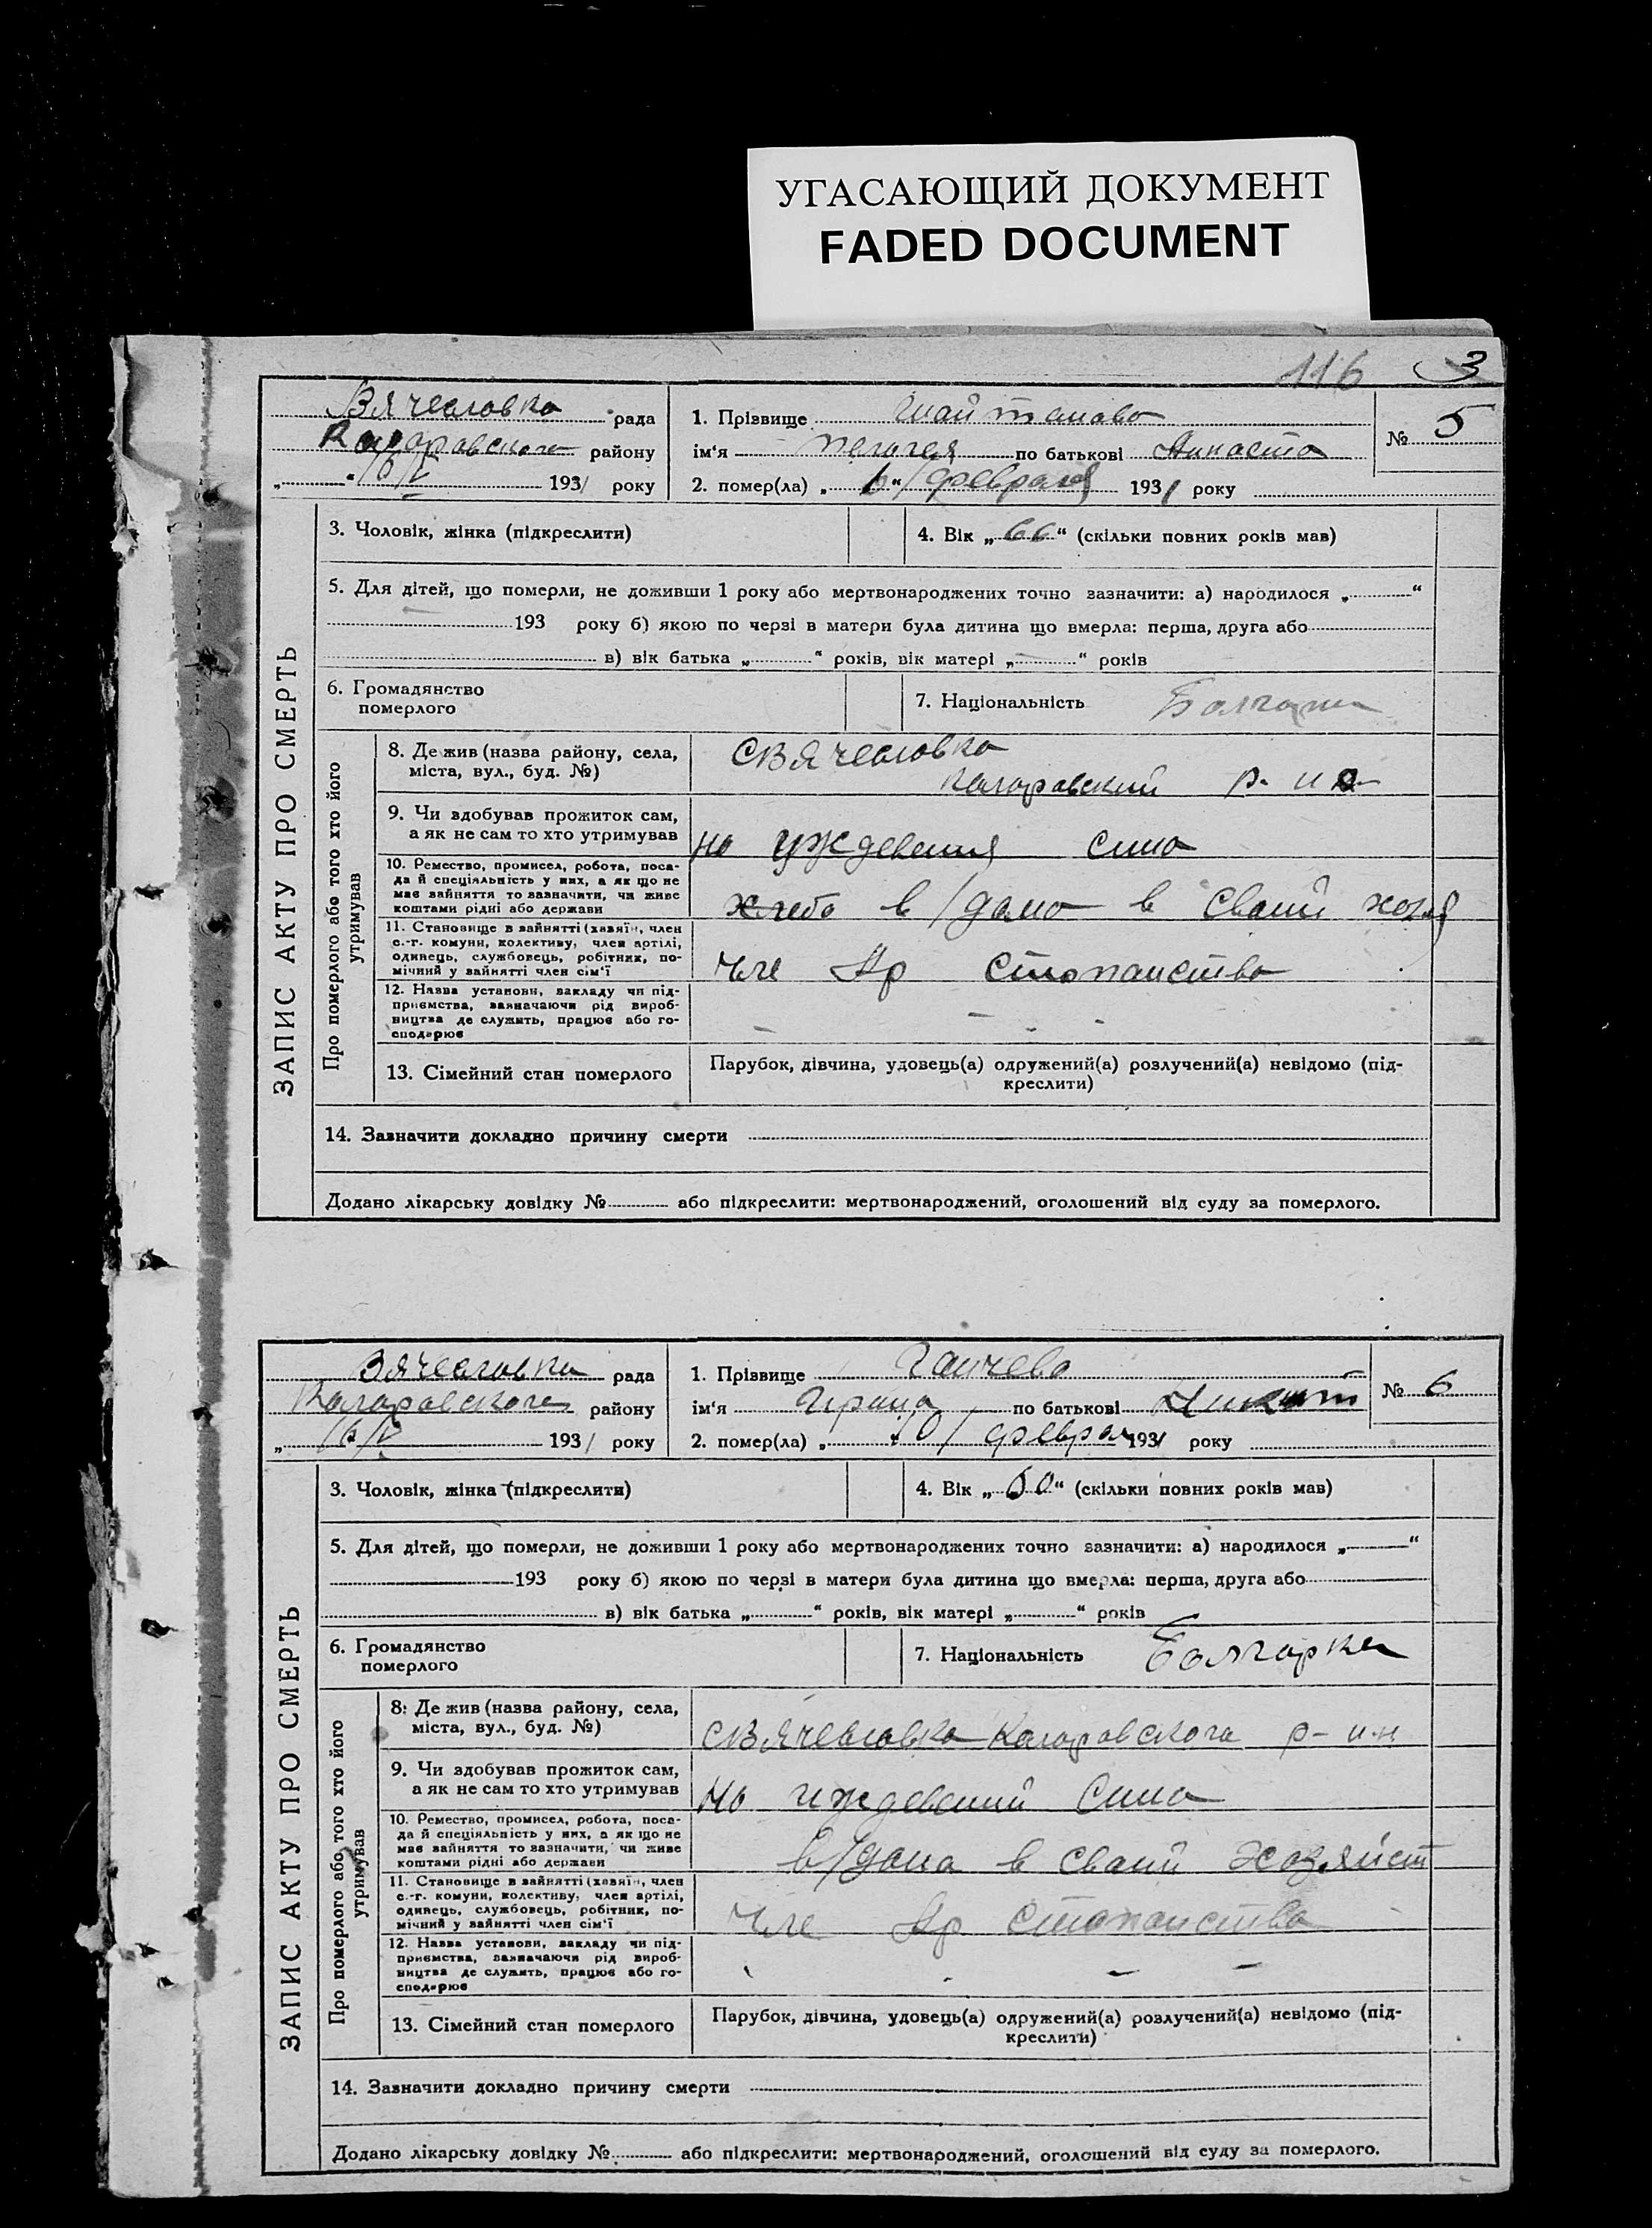 УГАСАЮЩИЙ ДОКУМЕНТ
FADED DOCUMENT
116 3
Вячеславка рада
Коларовского району
„ “ 16/V 1931 року
1. Прізвище
ім'я Пелагея по батькові
2. помер(ла) „ 6 “ февраля 1931 року
№ 5
ЗАПИС АКТУ ПРО СМЕРТЬ
3. Чоловік, жінка (підкреслити)
4. Вік „66“ (скільки повних років мав)
5. Для дітей, що померли, не доживши 1 року або мертвонароджених точно зазначити: а) народилося „ “
193 року б) якою по черзі в матери була дитина що вмерла: перша, друга або
в) вік батька „ “ років, вік матері „ “ років
6. Громадянство
померлого
7. Національність
Про померлого або того хто його
утримував
8. Де жив (назва району, села,
міста, вул., буд. №)
СВячеславка
Коларовский р-на
9. Чи здобував прожиток сам,
а як не сам то хто утримував
на уждевения сина
10. Ремество, промисел, робота, поса-
да й спеціяльність у них, а як що не
має зайняття то зазначити, чи живе
коштами рідні або держави
хлебо в/дано в сваий
11. Становище в зайнятті (хазяїн, член
с.-г. комуни, колективу, член артілі,
одинець, службовець, робітник, по-
мічний у зайнятті член сім'ї
Чле Кр стопанства
12. Назва установи, закладу чи під-
приємства, зазначаючи рід вироб-
ництва де служить, працює або го-
сподарює
13. Сімейний стан померлого
Парубок, дівчина, удовець(а) одружений(а) розлучений(а) невідомо (під-
креслити)
14. Зазначити докладно причину смерти
Додано лікарську довідку № або підкреслити: мертвонароджений, оголошений від суду за померлого.
Вячеславка рада
Коларовского району
„ 16/V 1931 року
1. Прізвище Ганчева
ім'я Ирина по батькові Никит
2. помер(ла) „ 10/ феврал 1931 року
№ 6
ЗАПИС АКТУ ПРО СМЕРТЬ
3. Чоловік, жінка (підкреслити)
4. Вік „60“ (скільки повних років мав)
5. Для дітей, що померли, не доживши 1 року або мертвонароджених точно зазначити: а) народилося „ “
193 року б) якою по черзі в матери була дитина що вмерла: перша, друга або
в) вік батька „ “ років, вік матері „ “ років
6. Громадянство
померлого
7. Національність Болгарка
Про померлого або того хто його
утримував
8. Де жив (назва району, села,
міста, вул., буд. №)
СВячеславка Коларовского р-н
9. Чи здобував прожиток сам,
а як не сам то хто утримував
На иждевений Сина
10. Ремество, промисел, робота, поса-
да й спеціяльність у них, а як що не
має зайняття то зазначити, чи живе
коштами рідні або держави
в/дана в сваий хозяйст
11. Становище в зайнятті (хазяїн, член
с.-г. комуни, колективу, член артілі,
одинець, службовець, робітник, по-
мічний у зайнятті член сім'ї
Чле Кр стопанства
12. Назва установи, закладу чи під-
приємства, зазначаючи рід вироб-
ництва де служить, працює або го-
сподарює
13. Сімейний стан померлого
Парубок, дівчина, удовець(а) одружений(а) розлучений(а) невідомо (під-
креслити)
14. Зазначити докладно причину смерти
Додано лікарську довідку № або підкреслити: мертвонароджений, оголошений від суду за померлого.